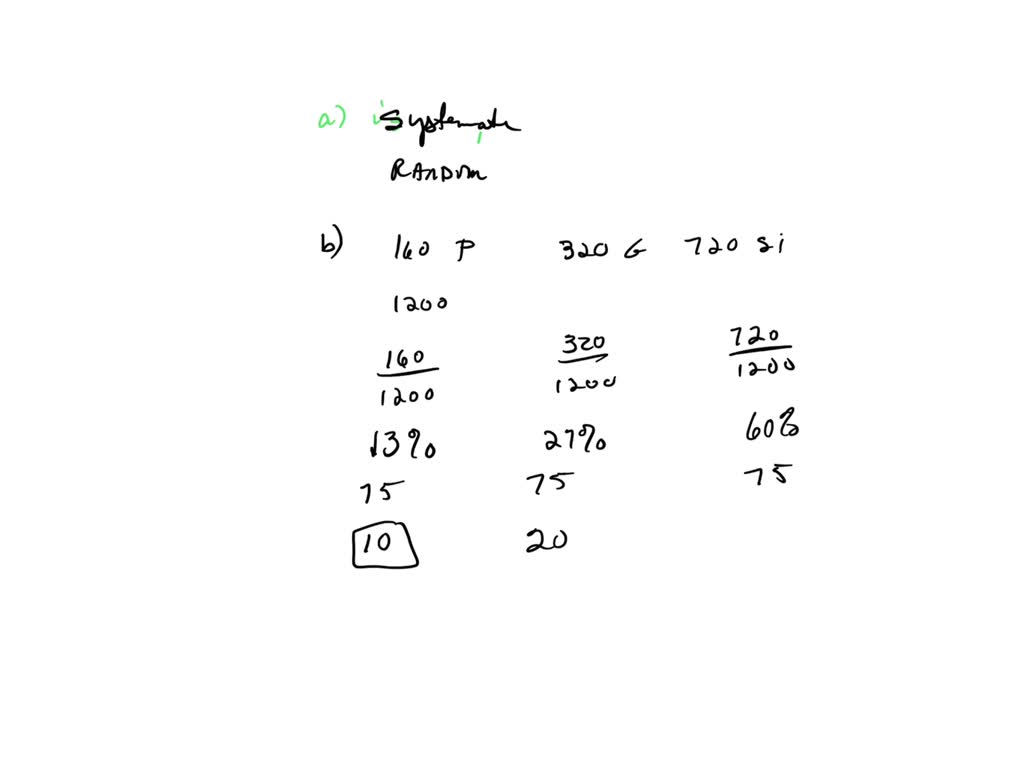 a) Systematic
RANDOM
b) 160 P 320 G 720 Si
1200
160/1200 320/1200 720/1200
13% 27% 60%
75 75 75
10 20